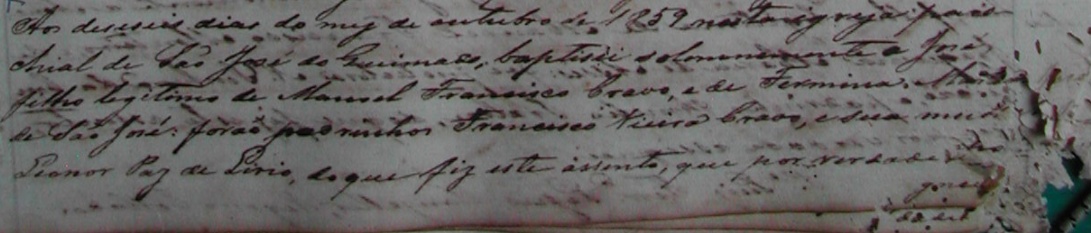 Aos deseseis dias do mez de outubro de 1859 nesta igreja paro
chial de São José do Guimaes, baptisei solemnemente a José
filho legitimo de Manoel Francisco Cravo, e de Fermina Maria
de São José: forão padrinhos Francisco Vieira Cravo, e sua mulher
Leonor Paz de Lirio, do que fiz este assento, que por verdade